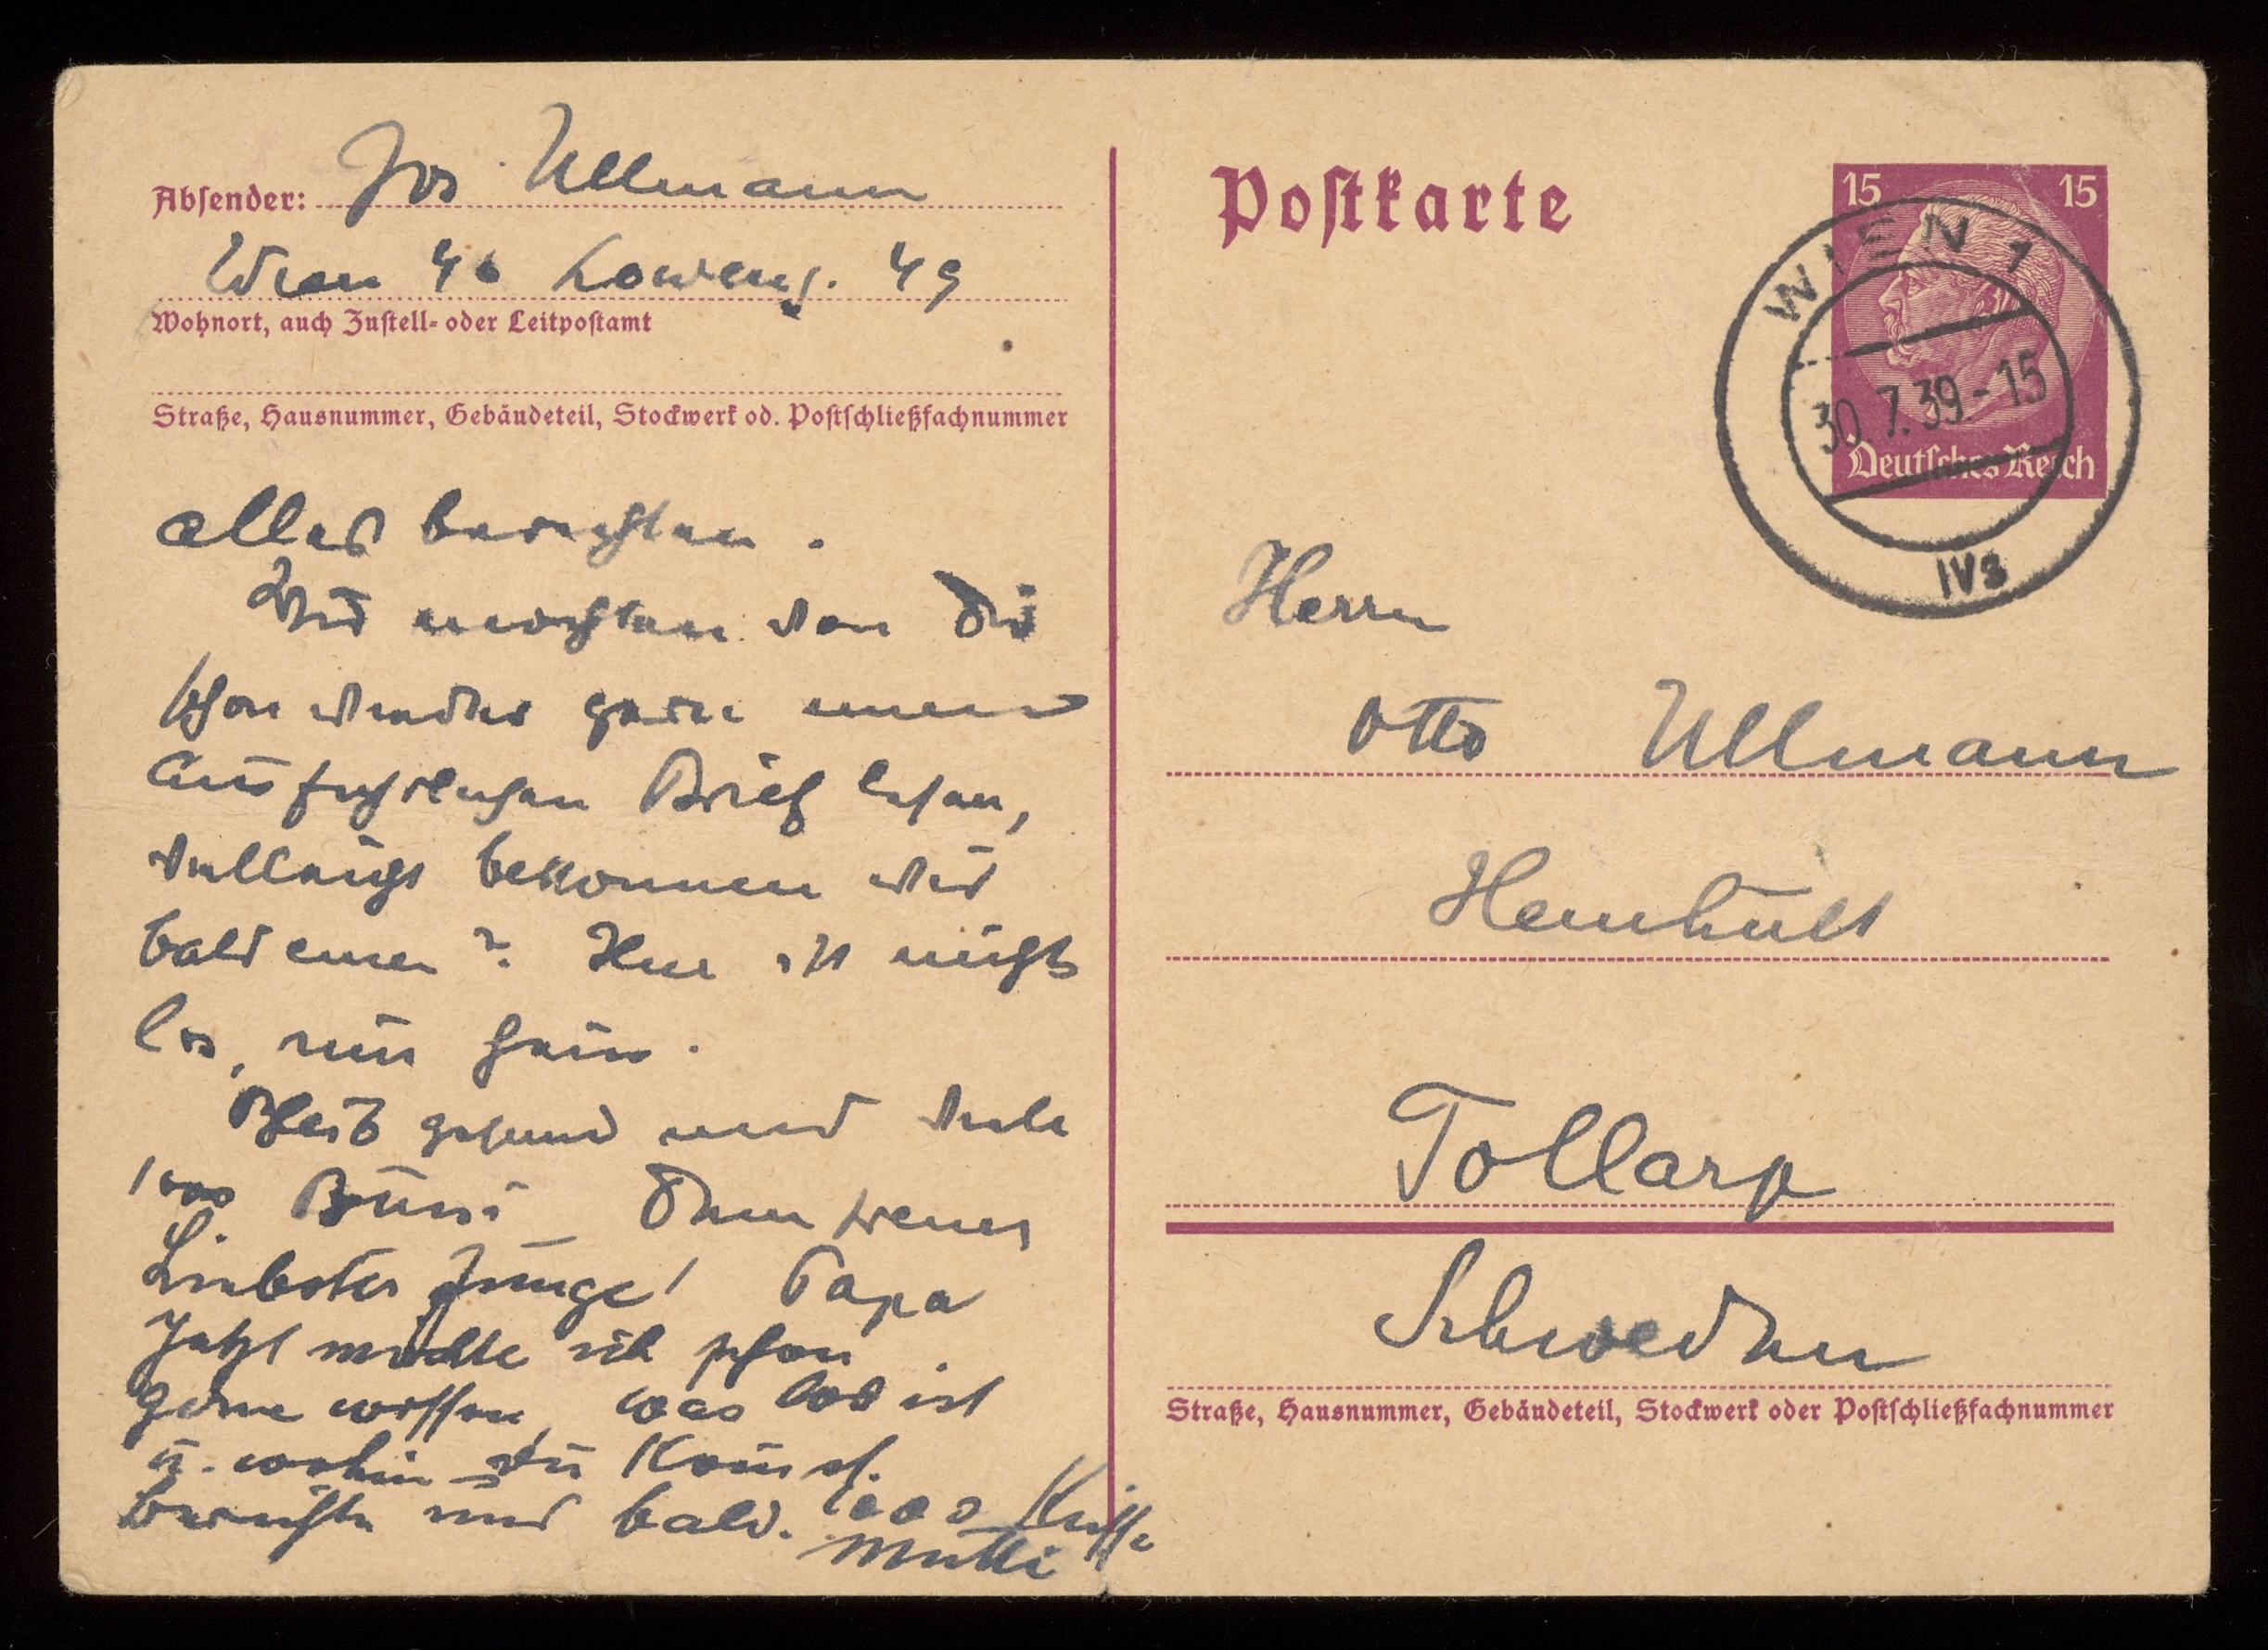 Absender: Jos Ullmann
Wien 40 Löweng. 49
Wohnort, auch Zustell- oder Leitpostamt
Straße, Hausnummer, Gebäudeteil, Stockwerk od. Postschließfachnummer
alles berichten.
Wir möchten von Dir
schon wieder gerne einen
ausführlichen Brief lesen,
vielleicht bekommen wir
bald einen? Hier ist nichts
los, nur heiss.
Bleib gesund und viele
1000 Bussi Dein treuer
Papa
Liebster Junge!
Jetzt möchte ich schon
gerne wissen, was los ist
u. wohin du kommst.
Berichte uns bald. 1000 Küsse
Mutti
Postkarte
15 15
Deutsches Reich
WIEN 1
30.7.39.-15
Herrn
Otto Ullmann
Hemhult
Tollarp
Schweden
Straße, Hausnummer, Gebäudeteil, Stockwerk oder Postschließfachnummer